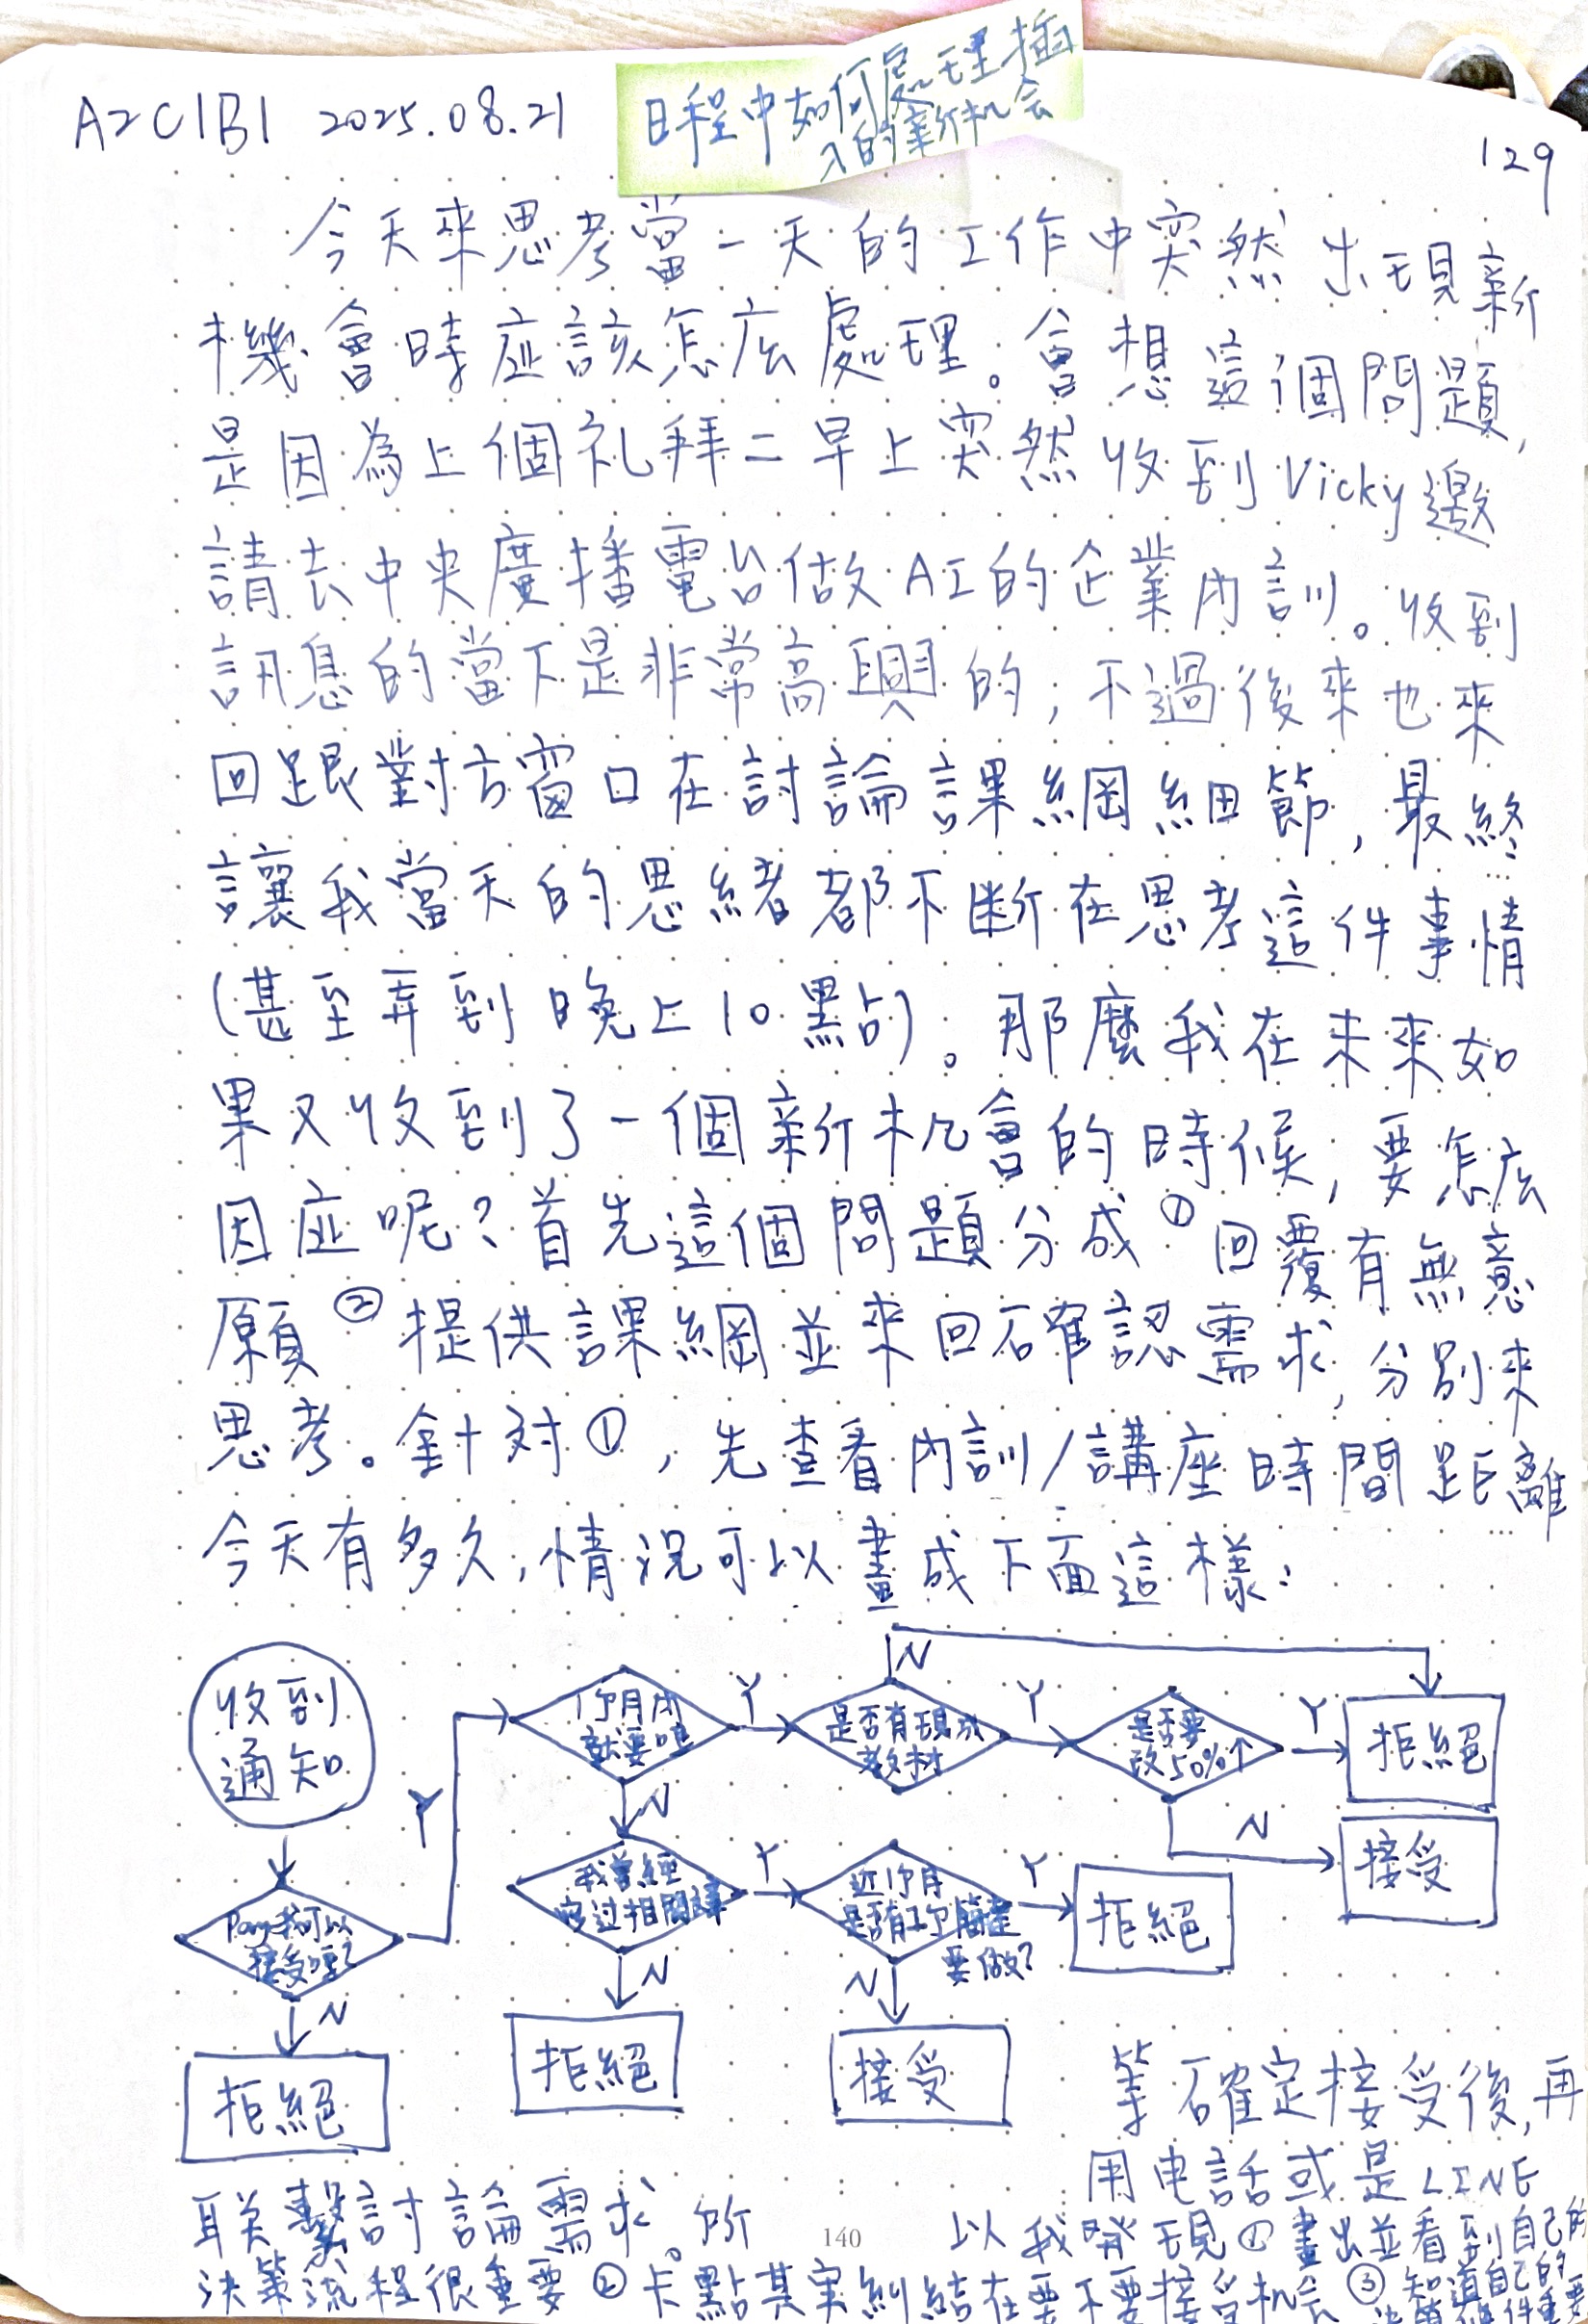 A2C1B1 2025.08.21
日程中如何處理插
入的新机会
129
今天來思考當一天的工作中突然出現新
機會時應該怎么處理。會想這個問題,
是因為上個礼拜二早上突然收到Vicky邀
請去中央廣播電台做AI的企業內訓。收到
訊息的當下是非常高興的,不過後來也來
回跟對方窗口在討論課綱細節,最終
讓我當天的思緒都不斷在思考這件事情
(甚至弄到晚上10點)。那麼我在未來如
果又收到了一個新机會的時候,要怎么
因应呢?首先這個問題分成①回覆有無意
願②提供課綱並來回確認需求,分別來
思考。針对①,先查看內訓/講座時間距離
今天有多久,情况可以畫成下面這樣:
收到
通知
Y
1个月内
就要嗎
Y
是否有現成
教材
N
Y
是否要
改50%↑
Y
拒絕
N
接受
N
我曾經
寫过相關課
Y
近1个月
是否有工作
要做?
Y
拒絕
N
接受
N
拒絕
我可以
接受嗎?
N
拒絕
等確定接受後,再
用电話或是LINE
联繫討論需求。所以我發現①畫出並看到自己的
140
決策流程很重要②卡點其实糾結在要不要接受机会③知道自己的